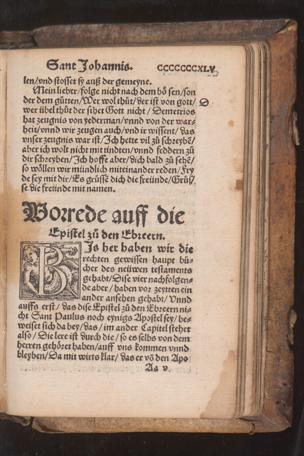 Sant Johannis. CCCCCCCXLV
len/vnd stosset sy auß der gemeyne.
Mein lieber/folge nicht nach dem bösen/son
der dem gütten/Wer wol thůt/der ist von gott/ D
wer übel thůt der sihet Gott nicht/Demetrios
hat zeugnis von yederman/vnnd von der war
heit/vnnd wir zeugen auch/vnd ir wissent/das
vnser zeugnis war ist/Ich hette vil zů schreybē/
aber ich wolt nicht mit tindten/vnnd feddern zů
dir schreyben/Ich hoffe aber/dich bald zů sehē/
so wöllen wir mündlich miteinander reden/Fry
de sey mit dir/Es grüsse dich die freünde/Grüs/
se die freünde mit namen.
Vorrede auff die
Epistel zů den Ebreern.
BIs her haben wir die
rechten gewissen haupt bü
cher des neüwen testaments
gehabt/Dise vier nachfolgen
de aber/haben vor zeytten ein
ander ansehen gehabt/Vnnd
auffs erst/das dise Epistel zů den Ebreern ni
cht Sant Paulus noch eynigs Apostel sey/be
weiset sich da bey/das/im ander Capitel stehet
also/Die lere ist durch die/so es selbs von dem
herren gehöret haben/auff vns kommen vnnd
bleyben/Da mit wirts klar/das er vō den Apo
Aa v.